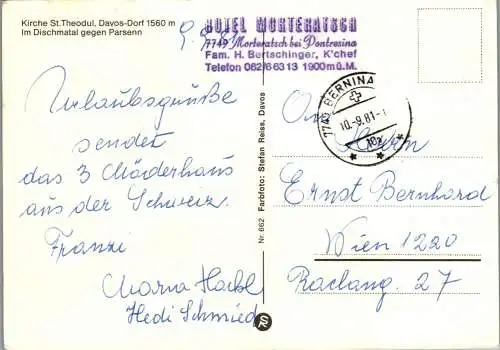 Kirche St. Theodul, Davos-Dorf 1560 m
Im Dischmatal gegen Parsenn
9. 9. 81
HOTEL MORTERATSCH
7749 Morteratsch bei Pontresina
Fam. H. Bertschinger, K'chef
Telefon 082/6 63 13 1900 m ü. M.
Urlaubsgrüße
sendet
das 3 Mäderlhaus
aus der Schweiz.
Franzi
Maria
Hedi Schmied
Nr. 662 Farbfoto: Stefan Reiss, Davos
7749 BERNINA
10.-9.81
Herrn
Ernst Bernhard
Wien 1220
27